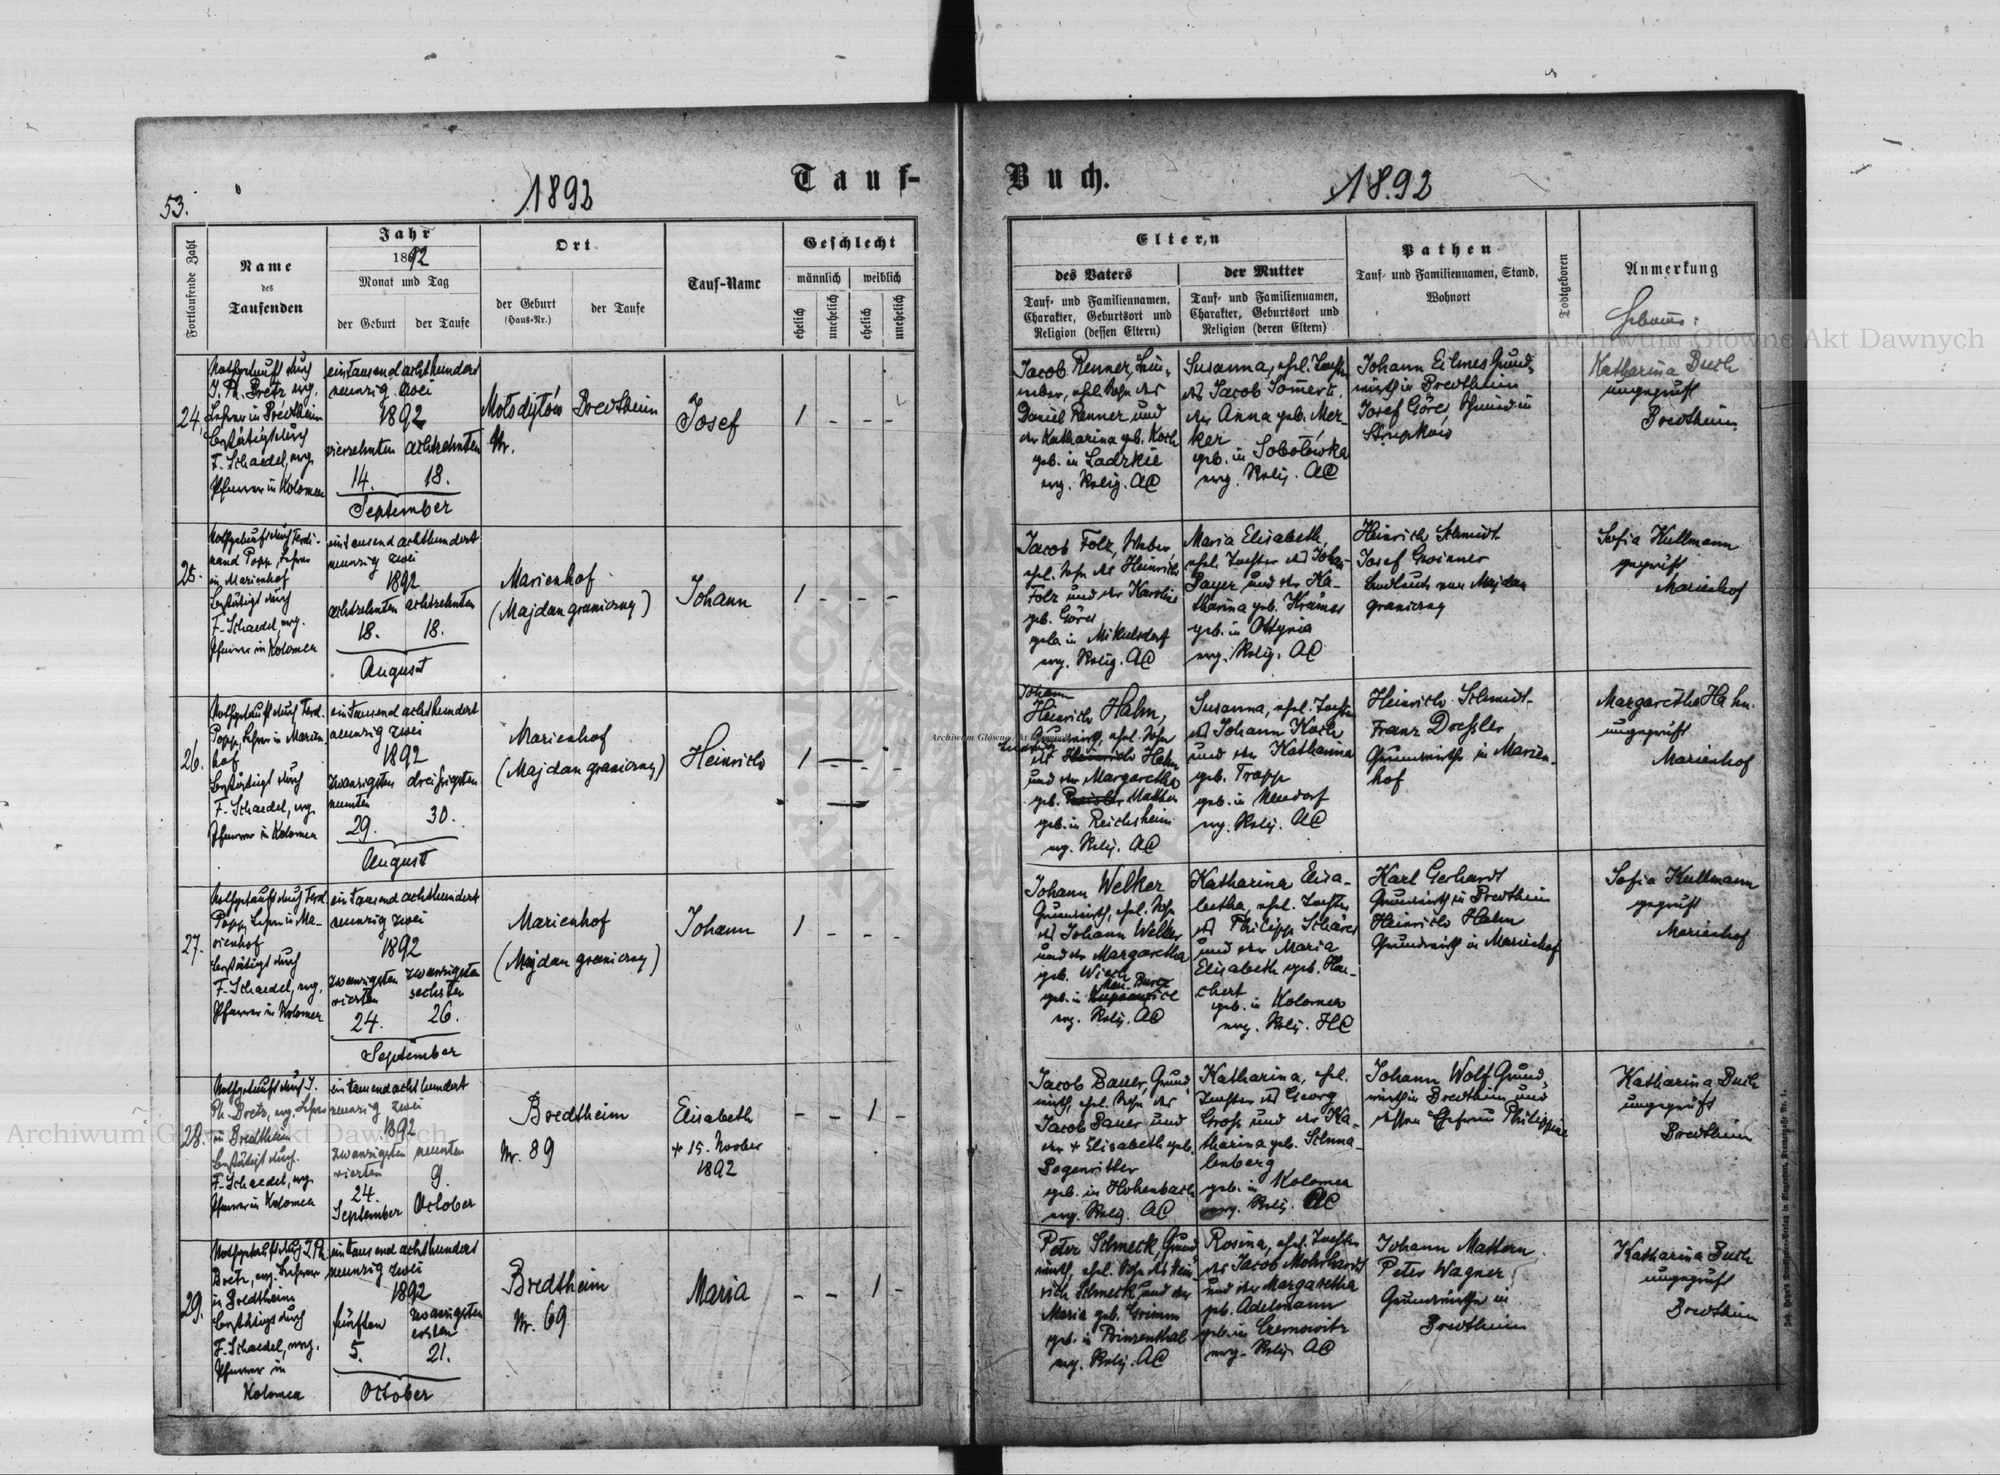 53.
1892
Tauf-
Fortlaufende Zahl
Name
des
Taufenden
Jahr
1892
Monat und Tag
der Geburt
der Taufe
Ort
der Geburt
(Haus-Nr.)
der Taufe
Tauf-Name
Geschlecht
männlich
weiblich
ehelich
unehelich
ehelich
unehelich
24.
Nothgetauft durch
J. Ph. Bretz, evg.
Lehrer in Bredtheim
bestätigt durch
F. Schaedel, evg.
Pfarrer in Kolomea
eintausend achthundert
neunzig zwei
1892
vierzehnten achtzehnten
14. 18.
September
Mołodyłów
Nr.
Bredtheim
Josef
1 - - -
25.
Nothgetauft durch Ferdi-
nand Popp, Lehrer
in Marienhof
bestätigt durch
F. Schaedel, evg.
Pfarrer in Kolomea
eintausend achthundert
neunzig zwei
1892
achtzehnten achtzehnten
18. 18.
August
Marienhof
(Majdan graniczny)
Johann
1 - - -
26.
Nothgetauft durch Ferd.
Popp, Lehrer in Marien-
hof
bestätigt durch
F. Schaedel, evg.
Pfarrer in Kolomea
eintausend achthundert
neunzig zwei
1892
zwanzigsten dreißigsten
neunten
29. 30.
August
Marienhof
(Majdan graniczny)
Heinrich
1 - - -
27.
Nothgetauft durch Ferd.
Popp, Lehrer in Ma-
rienhof
bestätigt durch
F. Schaedel, evg.
Pfarrer in Kolomea
eintausend achthundert
neunzig zwei
1892
zwanzigsten zwanzigsten
vierten sechsten
24. 26.
September
Marienhof
(Majdan graniczny)
Johann
1 - - -
28.
Nothgetauft durch J.
Ph. Bretz, evg. Lehrer
in Bredtheim
bestätigt durch
F. Schaedel, evg.
Pfarrer in Kolomea
eintausend achthundert
neunzig zwei
1892
zwanzigsten neunten
vierten
24. 9.
September October
Bredtheim
Nr. 89
Elisabeth
+ 15. Novber
1892
- - 1 -
29.
Nothgetauft durch J. Ph.
Bretz, evg. Lehrer
in Bredtheim
bestätigt durch
F. Schaedel, evg.
Pfarrer in
Kolomea
eintausend achthundert
neunzig zwei
1892
fünften zwanzigsten
ersten
5. 21.
October
Bredtheim
Nr. 69
Maria
- - 1 -
Buch.
1892
Eltern
des Vaters
Tauf- und Familiennamen,
Charakter, Geburtsort und
Religion (dessen Eltern)
der Mutter
Tauf- und Familiennamen,
Charakter, Geburtsort und
Religion (deren Eltern)
Pathen
Tauf- und Familiennamen, Stand,
Wohnort
Todtgeboren
Anmerkung
Hebamme:
Jacob Renner,
ehel. Sohn des
Daniel Renner und
der Katharina geb. Koch
geb. in Ladzkie
evg. Relig. AC
Susanna, ehel. Tochter
des Jacob Sommer u.
der Anna geb. Mer-
ker
geb. in Sobotówka
evg. Relig. AC
Johann Eilmes Grund-
wirth in Bredtheim
Josef Göres, Schmied in
Słupków
Katharina Buch
ungeprüft
Bredtheim
Jacob Folz, Weber,
ehel. Sohn des Heinrich
Folz und der Karoline
geb. Göres
geb. in Mikulsdorf
evg. Relig. AC
Maria Elisabeth,
ehel. Tochter des Johann
Payer und der Ka-
tharina geb. Krämer
geb. in Ottynia
evg. Relig. AC
Heinrich Schmidt
Josef
Landleute von Majdan
graniczny
Sofia Kullmann
geprüft
Marienhof
Johann
Heinrich Hahn,
Grundwirth, ehel. Sohn
des Heinrich Hahn
und der Margaretha
geb. Matthes
geb. in Reichsheim
evg. Relig. AC
Susanna, ehel. Tochter
des Johann Koch
und der Katharina
geb. Trapp
geb. in Neudorf
evg. Relig. AC
Heinrich Schmidt
Franz Dressler
Grundwirthe in Marien-
hof
Margaretha Hahn
ungeprüft
Marienhof
Johann Welker
Grundwirth, ehel. Sohn
des Johann Welker
und der Margaretha
geb.
geb. in
evg. Relig. AC
Katharina Elisa-
betha, ehel. Tochter
des Philipp Schärer
und der Maria
Elisabeth geb. Har-
chert
geb. in Kolomea
evg. Relig. HC
Karl Gerhardt
Grundwirth in Bredtheim
Heinrich Hahn
Grundwirth in Marienhof
Sofia Kullmann
geprüft
Marienhof
Jacob Bauer, Grund-
wirth, ehel. Sohn des
Jacob Bauer und
der + Elisabeth geb.
Pogenritter
geb. in Hohenbach
evg. Relig. AC
Katharina, ehel.
Tochter des Georg
Groß und der Ka-
tharina geb. Schmal-
lenberg
geb. in Kolomea
evg. Relig. AC
Johann Wolf Grund-
wirth in Bredtheim und
dessen Ehefrau Philippine
Katharina Buch
ungeprüft
Bredtheim
Peter Schmeck, Grund-
wirth, ehel. Sohn des Hein-
rich Schmeck und der
Maria geb. Grimm
geb. in Prinzenthal
evg. Relig. AC
Rosina, ehel. Tochter
des Jacob Mohrhardt
und der Margaretha
geb. Adelmann
geb. in Czernowitz
evg. Relig. AC
Johann Mattern
Peter Wagner
Grundwirthe in
Bredtheim
Katharina Buch
ungeprüft
Bredtheim
Archiwum Główne Akt Dawnych
Archiwum Główne Akt Dawnych
Archiwum Główne Akt Dawnych